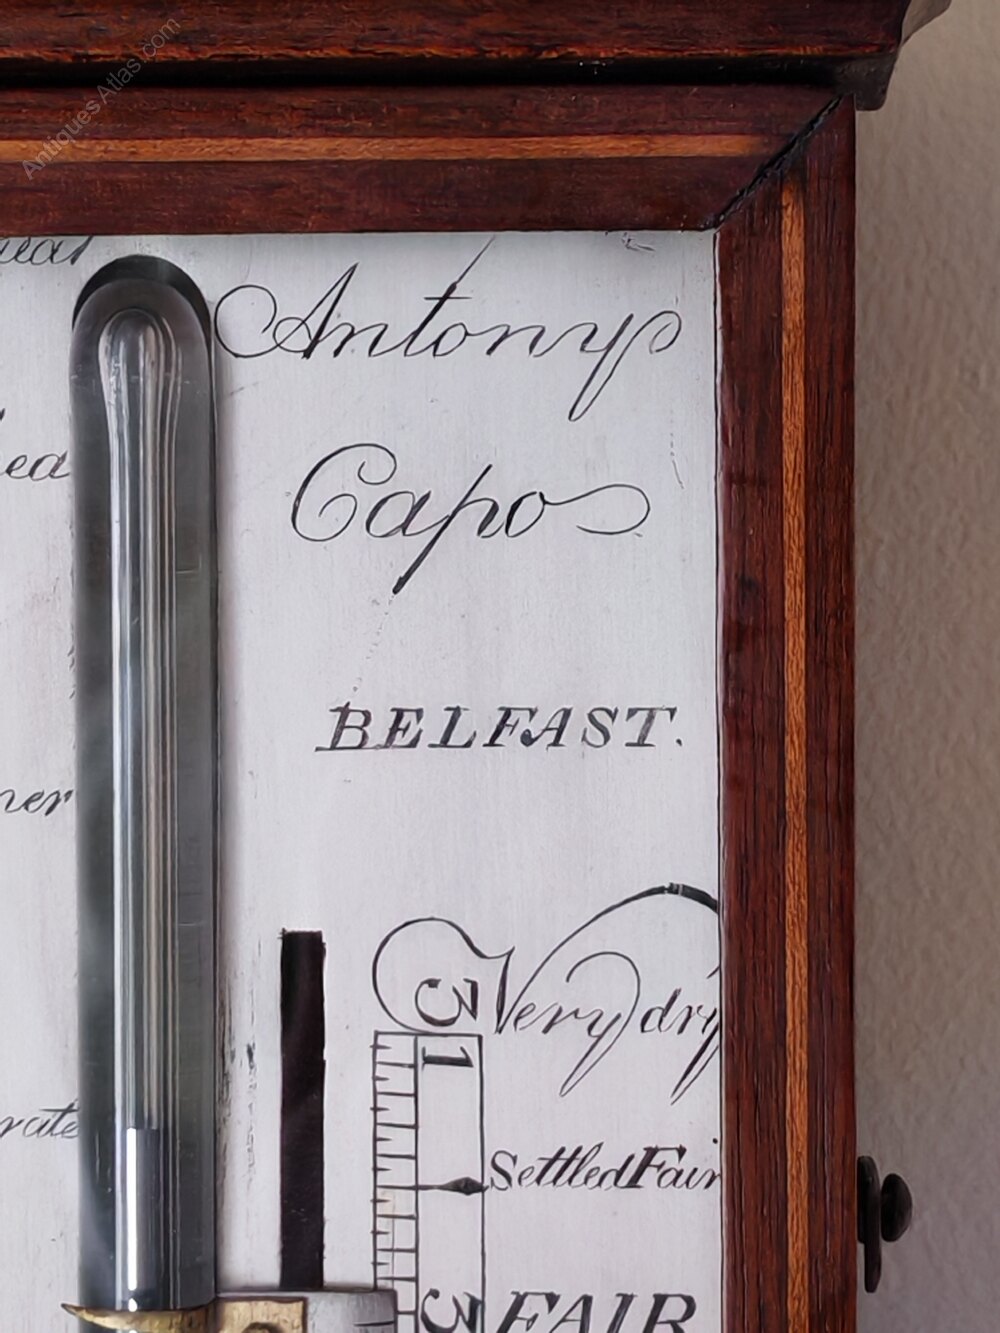 AntiquesAtlas.com
Antony
Capo
BELFAST.
ea
ner
31
Very dry
rate
Settled Fair
3
FAIR